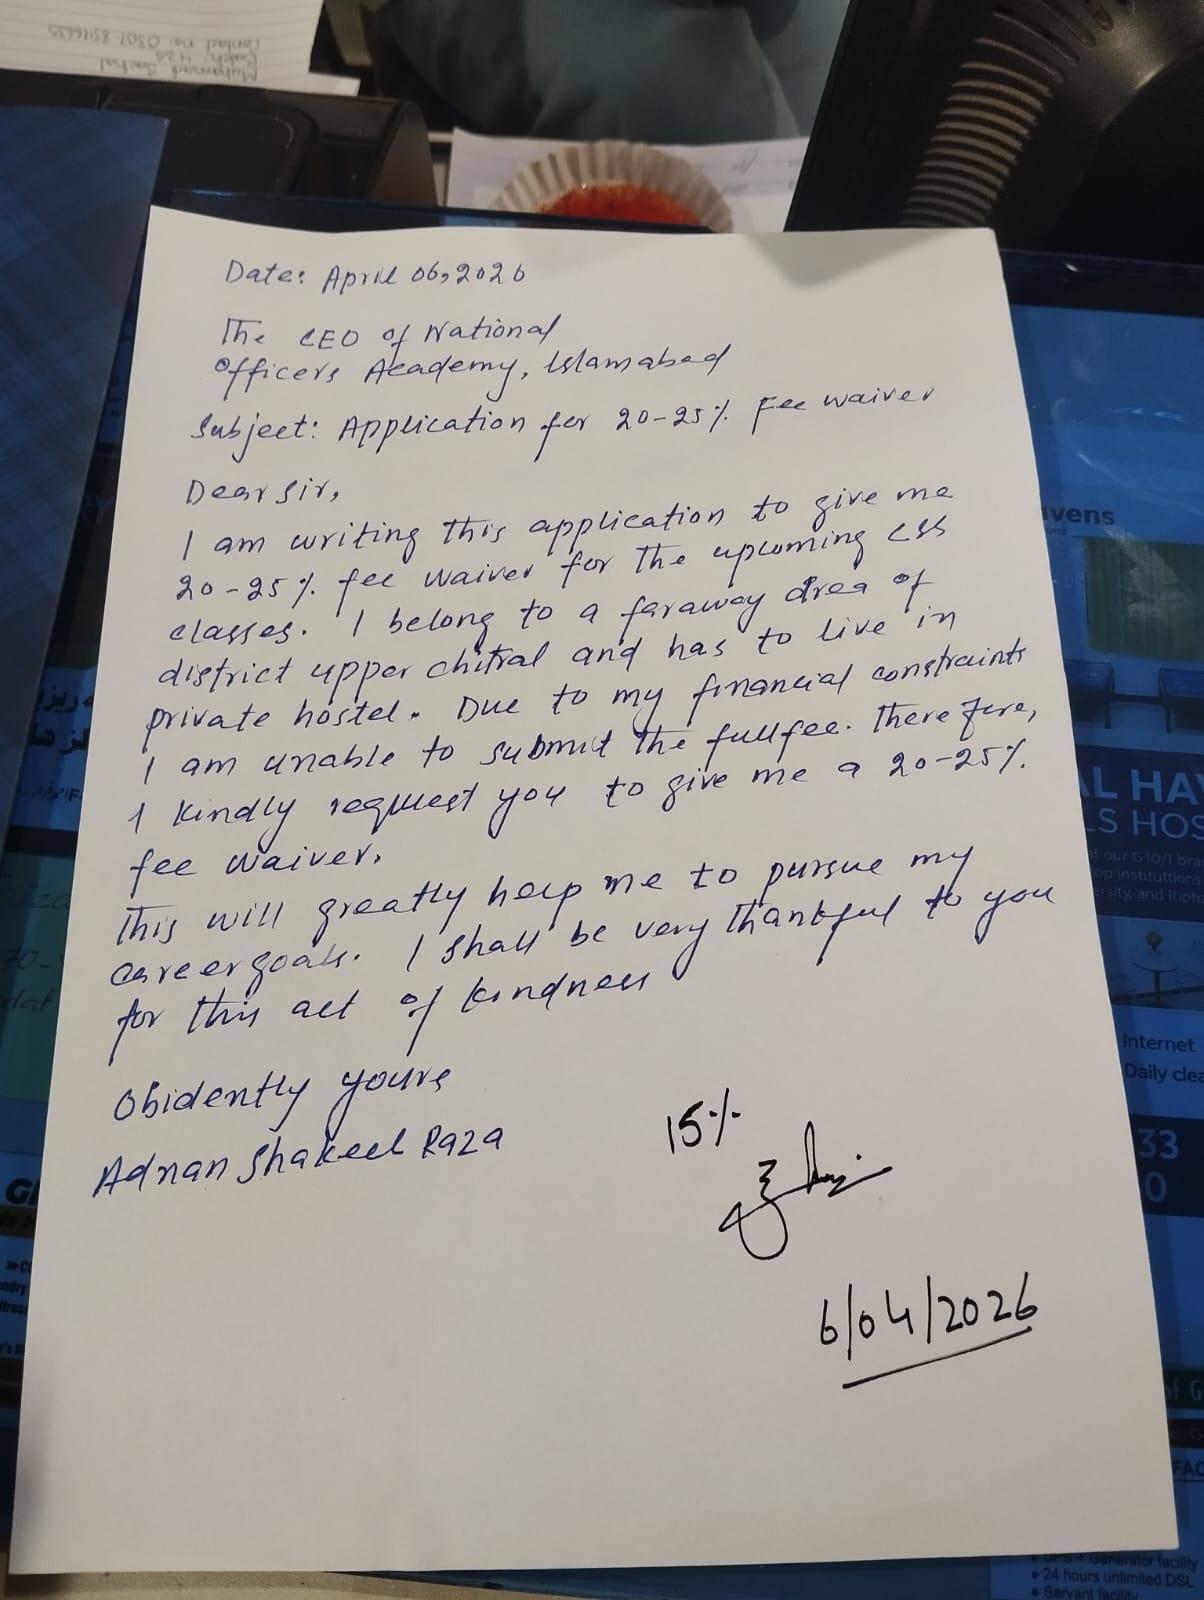 Muhammad Sachal
Batch: 426
Contact no: 0301 8546635
Date: April 06, 2026
The CEO of National
Officers Academy, Islamabad
Subject: Application for 20-25% fee waiver
Dear Sir,
I am writing this application to give me
20-25% fee waiver for the upcoming CSS
classes. I belong to a faraway area of
district upper chitral and has to live in
private hostel. Due to my financial constraints
I am unable to submit the full fee. Therefore,
I kindly request you to give me a 20-25%
fee waiver.
This will greatly help me to pursue my
career goals. I shall be very thankful to you
for this act of kindness
Obidently yours
Adnan Shakeel Raza
15%
6/04/2026
vens
AL HAV
LS HOS
at our G-10/1 bra
top institutions
ersity, and Ripha
Internet
Daily clea
33
0
FAC
UPS + Generator facility
24 hours unlimited DSL
Servant facility